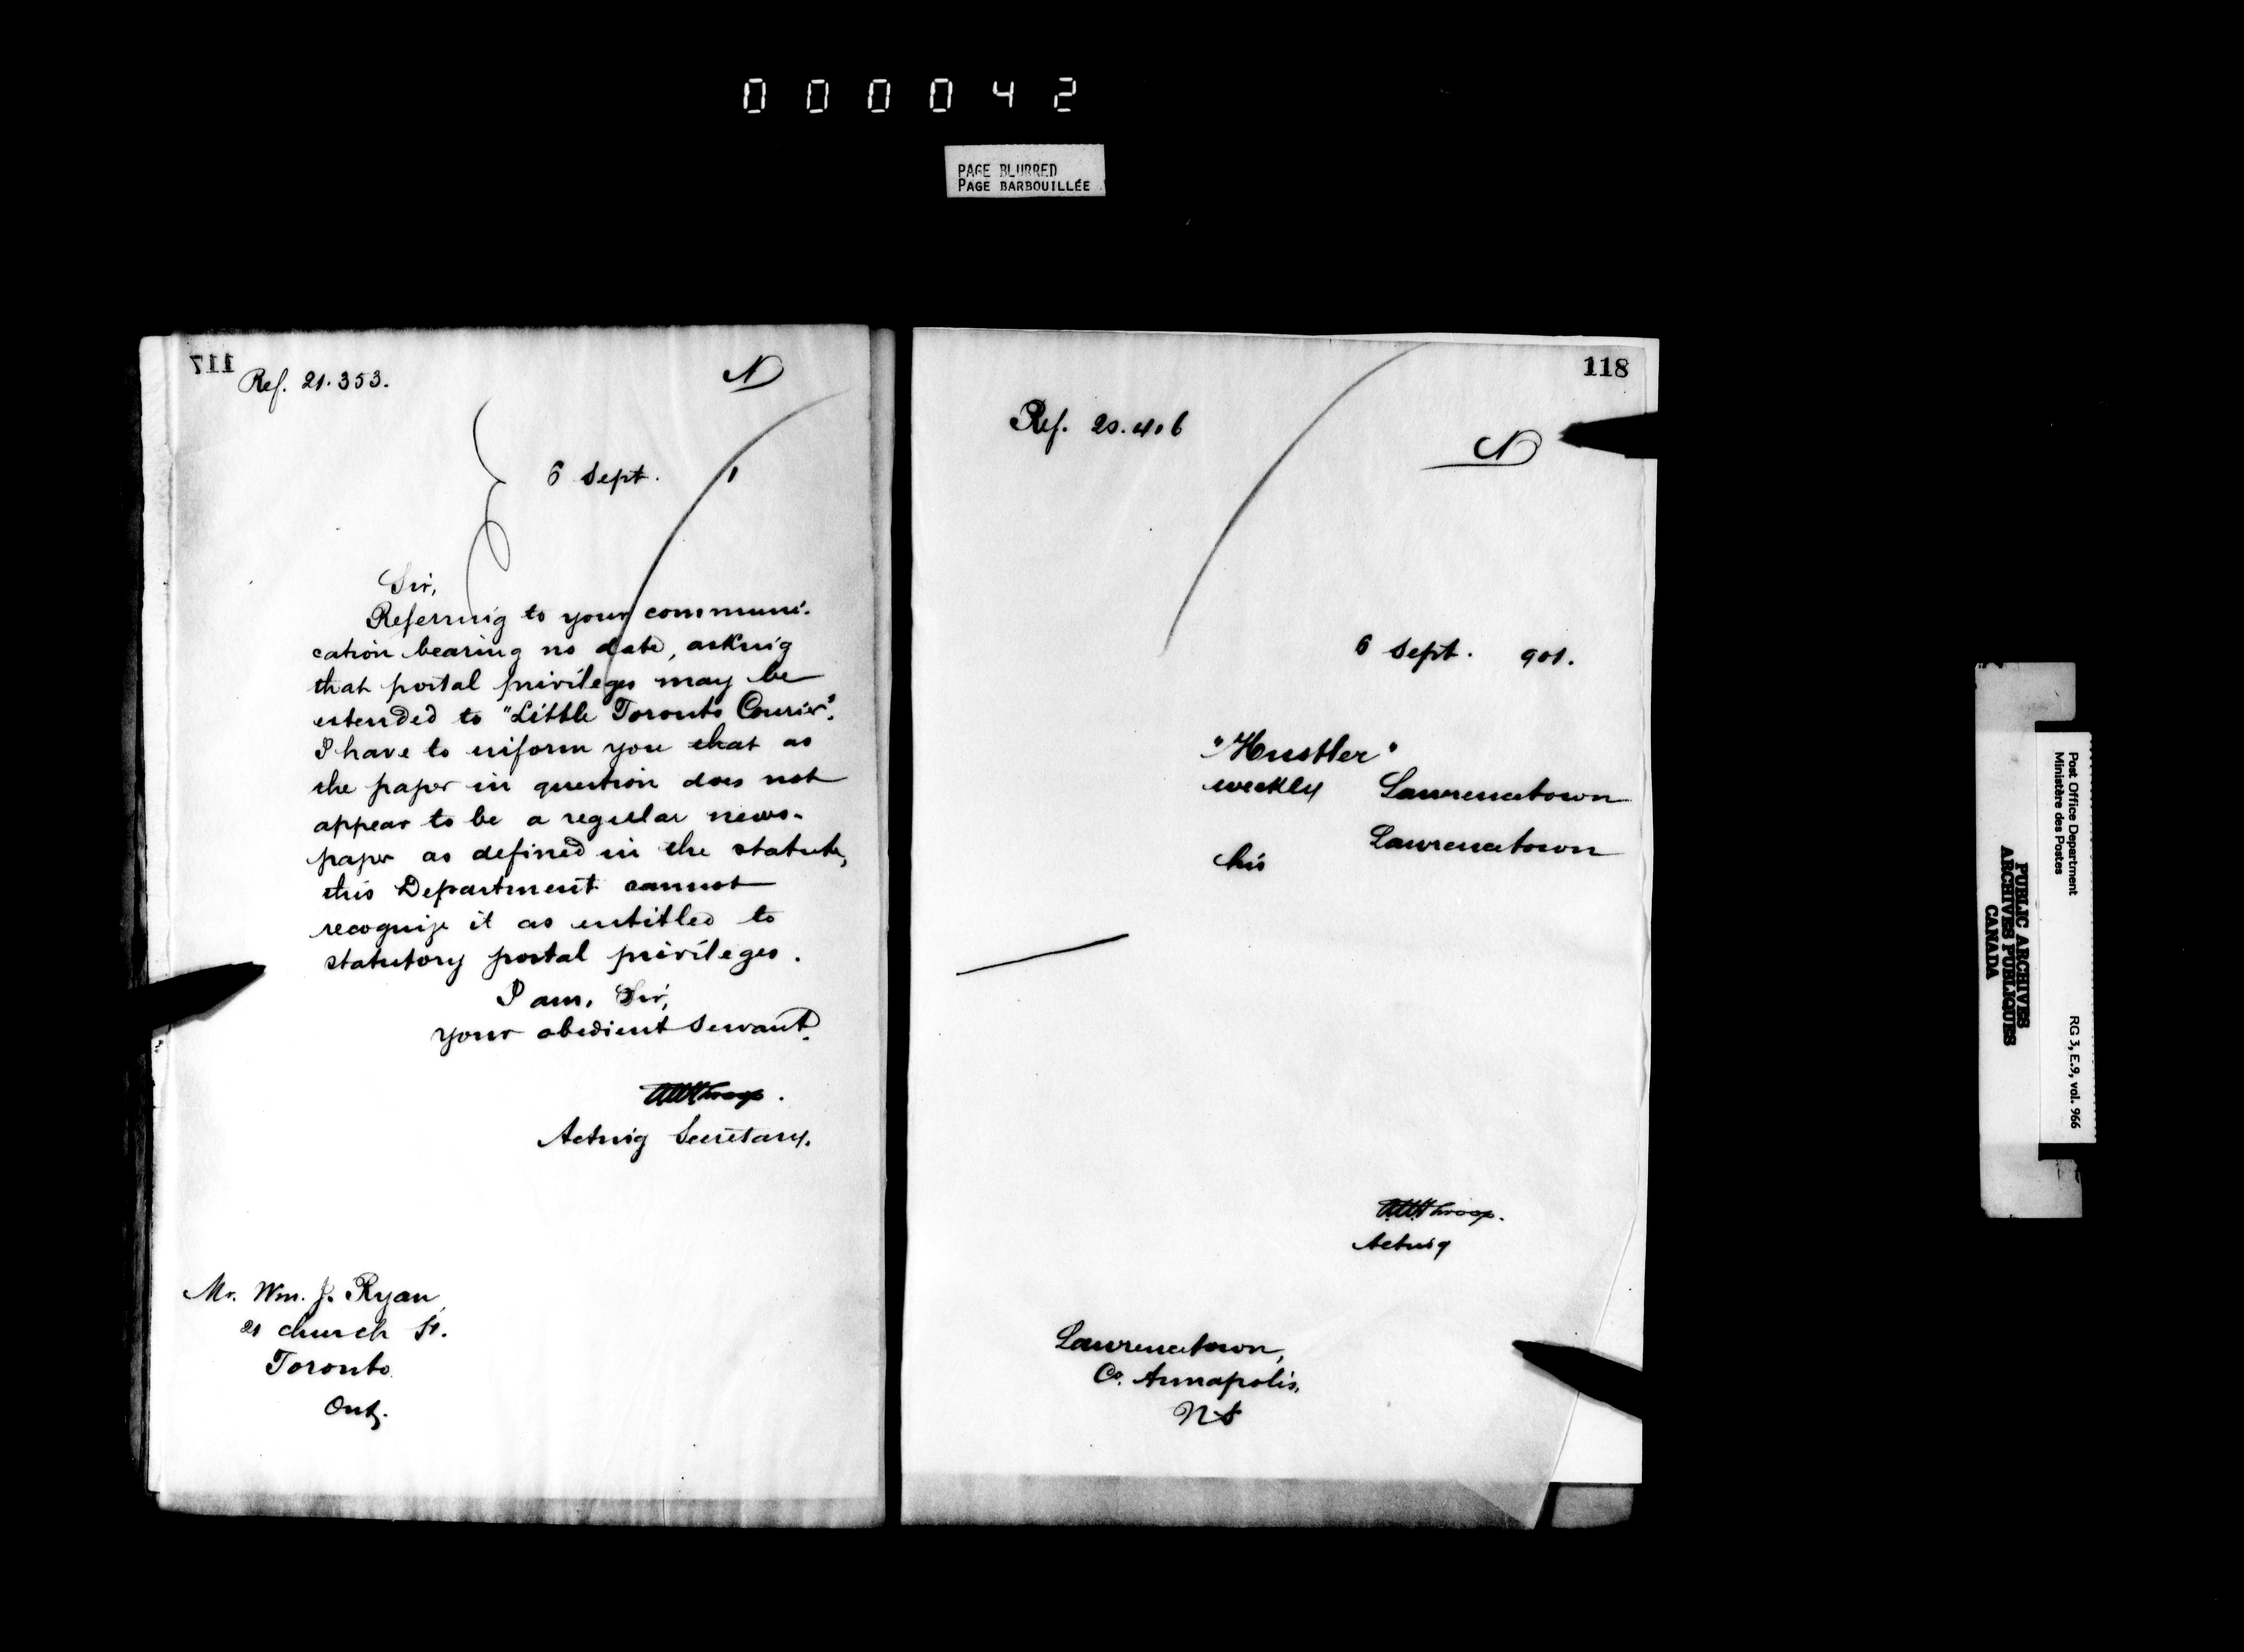 000042
PAGE BLURRED
PAGE BARBOUILLÉE
117
Ref. 21.353.
N
6 Sept. 1
Sir,
Referring to your communi-
cation bearing no date, asking
that postal privileges may be
extended to "Little Toronto Courier".
I have to inform you that as
the paper in question does not
appear to be a regular news-
paper as defined in the statute,
this Department cannot
recognize it as entitled to
statutory postal privileges.
I am, Sir,
your obedient servant.
Acting Secretary.
Mr. Wm. J. Ryan,
21 Church St.
Toronto
Ont.
118
Ref. 20.406
N
6 Sept. 901.
"Hustler"
weekly Lawrencetown
Lawrencetown
his
Acting
Lawrencetown,
Co. Annapolis,
NS
Post Office Department RG 3, E.9, vol. 966
Ministère des Postes
PUBLIC ARCHIVES
ARCHIVES PUBLIQUES
CANADA